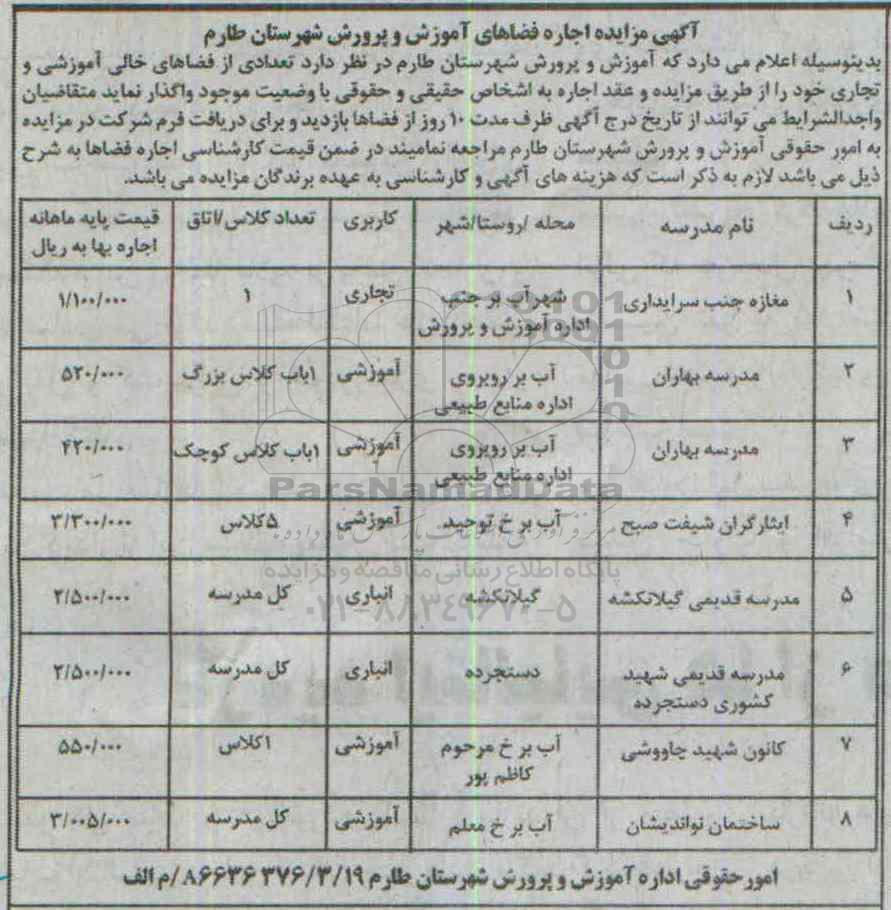 آگهی مزایده اجاره فضاهای آموزش و پرورش شهرستان طارم
بدینوسیله اعلام می دارد که آموزش و پرورش شهرستان طارم در نظر دارد تعدادی از فضاهای خالی آموزشی و
تجاری خود را از طریق مزایده و عقد اجاره به اشخاص حقیقی و حقوقی با وضعیت موجود واگذار نماید متقاضیان
واجدالشرایط می توانند از تاریخ درج آگهی ظرف مدت ۱۰ روز از فضاها بازدید و برای دریافت فرم شرکت در مزایده
به امور حقوقی آموزش و پرورش شهرستان طارم مراجعه نمایند در ضمن قیمت کارشناسی اجاره فضاها به شرح
ذیل می باشد لازم به ذکر است که هزینه های آگهی و کارشناسی به عهده برندگان مزایده می باشد.
ردیف نام مدرسه محله /روستا/شهر کاربری تعداد کلاس/اتاق قیمت پایه ماهانه
اجاره بها به ریال
۱ مغازه جنب سرایداری شهر آب بر جنب تجاری ۱ ۱/۱۰۰/۰۰۰
اداره آموزش و پرورش
۲ مدرسه بهاران آب بر روبروی آموزشی ۱باب کلاس بزرگ ۵۲۰/۰۰۰
اداره منابع طبیعی
۳ مدرسه بهاران آب بر روبروی آموزشی ۱باب کلاس کوچک ۴۲۰/۰۰۰
اداره منابع طبیعی
۴ ایثارگران شیفت صبح آب بر خ توحید آموزشی ۵کلاس ۳/۳۰۰/۰۰۰
۵ مدرسه قدیمی گیلانکشه گیلانکشه انباری کل مدرسه ۲/۵۰۰/۰۰۰
۶ مدرسه قدیمی شهید دستجرده انباری کل مدرسه ۲/۵۰۰/۰۰۰
کشوری دستجرده
۷ کانون شهید چاووشی آب بر خ مرحوم آموزشی ۱کلاس ۵۵۰/۰۰۰
کاظم پور
۸ ساختمان نواندیشان آب بر خ معلم آموزشی کل مدرسه ۳/۰۰۵/۰۰۰
امور حقوقی اداره آموزش و پرورش شهرستان طارم ۳۷۶/۳/۱۹ ۸۶۶۳۶/م الف
ParsNamadData
پایگاه اطلاع رسانی مناقصه و مزایده
۰۲۱-۸۸۳۴۹۶۷۰-۵